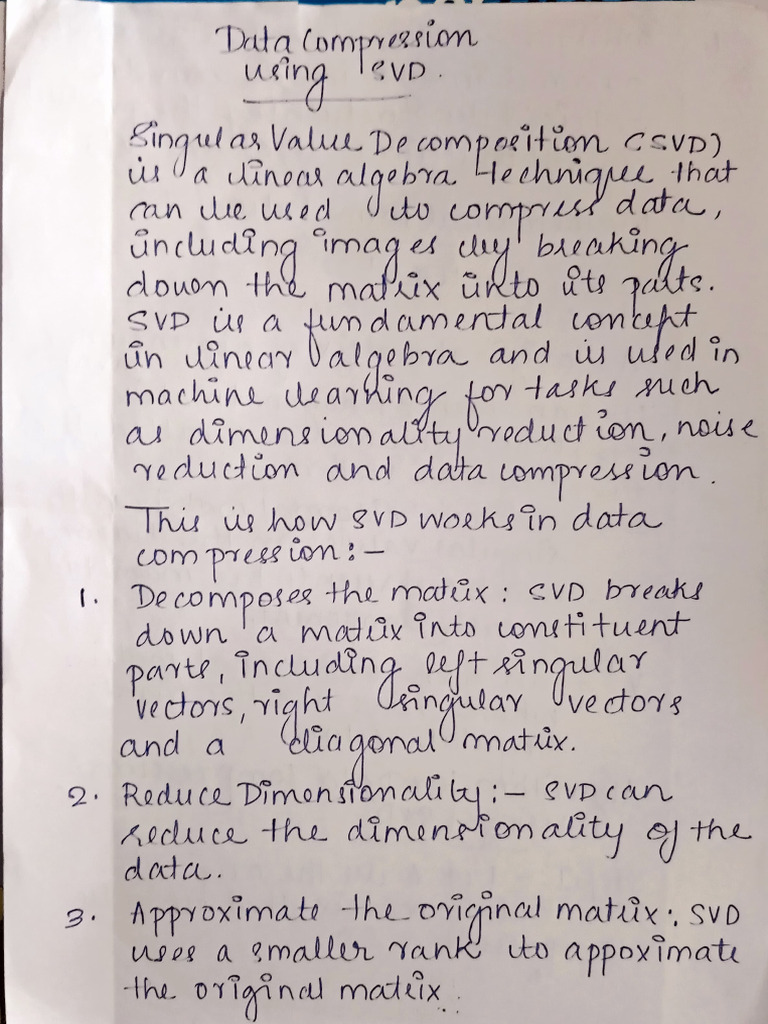 Data Compression
using SVD.
Singular Value Decomposition (SVD)
is a linear algebra technique that
can be used to compress data,
including images by breaking
down the matrix into its parts.
SVD is a fundamental concept
in linear algebra and is used in
machine learning for tasks such
as dimensionality reduction, noise
reduction and data compression.
This is how SVD works in data
compression:-
1. Decomposes the matrix: SVD breaks
down a matrix into constituent
parts, including left singular
vectors, right singular vectors
and a diagonal matrix.
2. Reduce Dimensionality:- SVD can
reduce the dimensionality of the
data.
3. Approximate the original matrix: SVD
uses a smaller rank to appoximate
the original matrix.